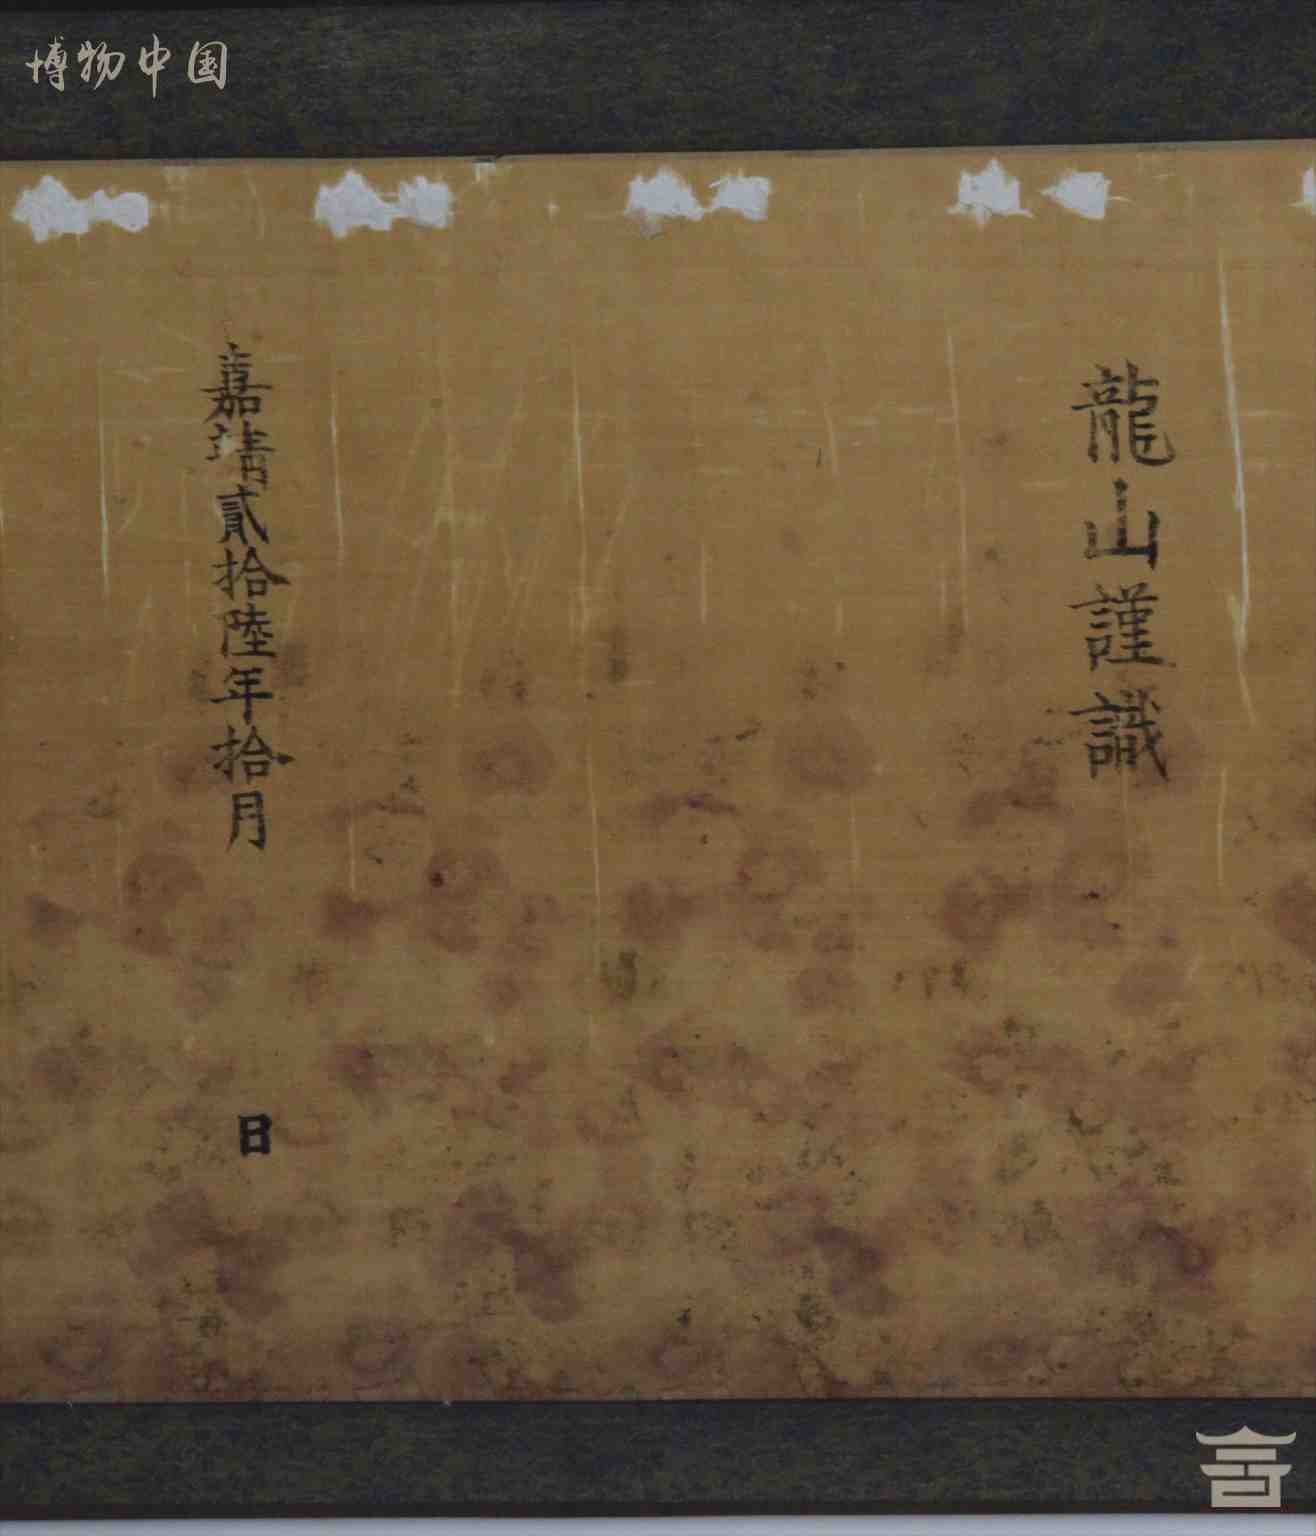 博物中国
龍山謹識
嘉靖貳拾陸年拾月 日